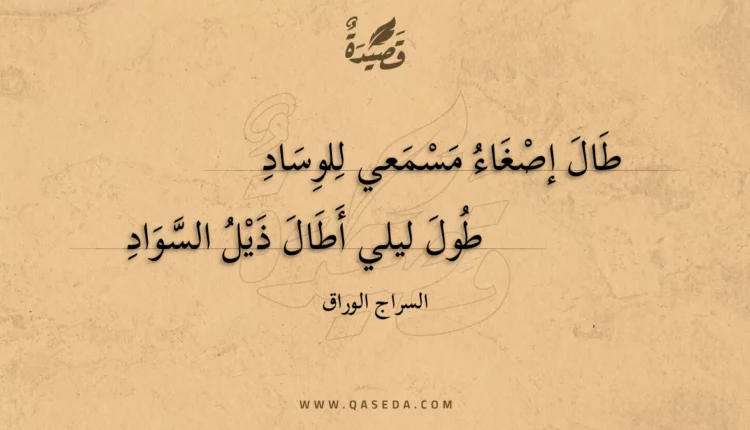 قَصِيْدَةٌ
طَالَ إصْغَاءُ مَسْمَعي لِلوِسَادِ
طُولَ ليلي أَطَالَ ذَيْلُ السَّوَادِ
السراج الوراق
WWW.QASEDA.COM